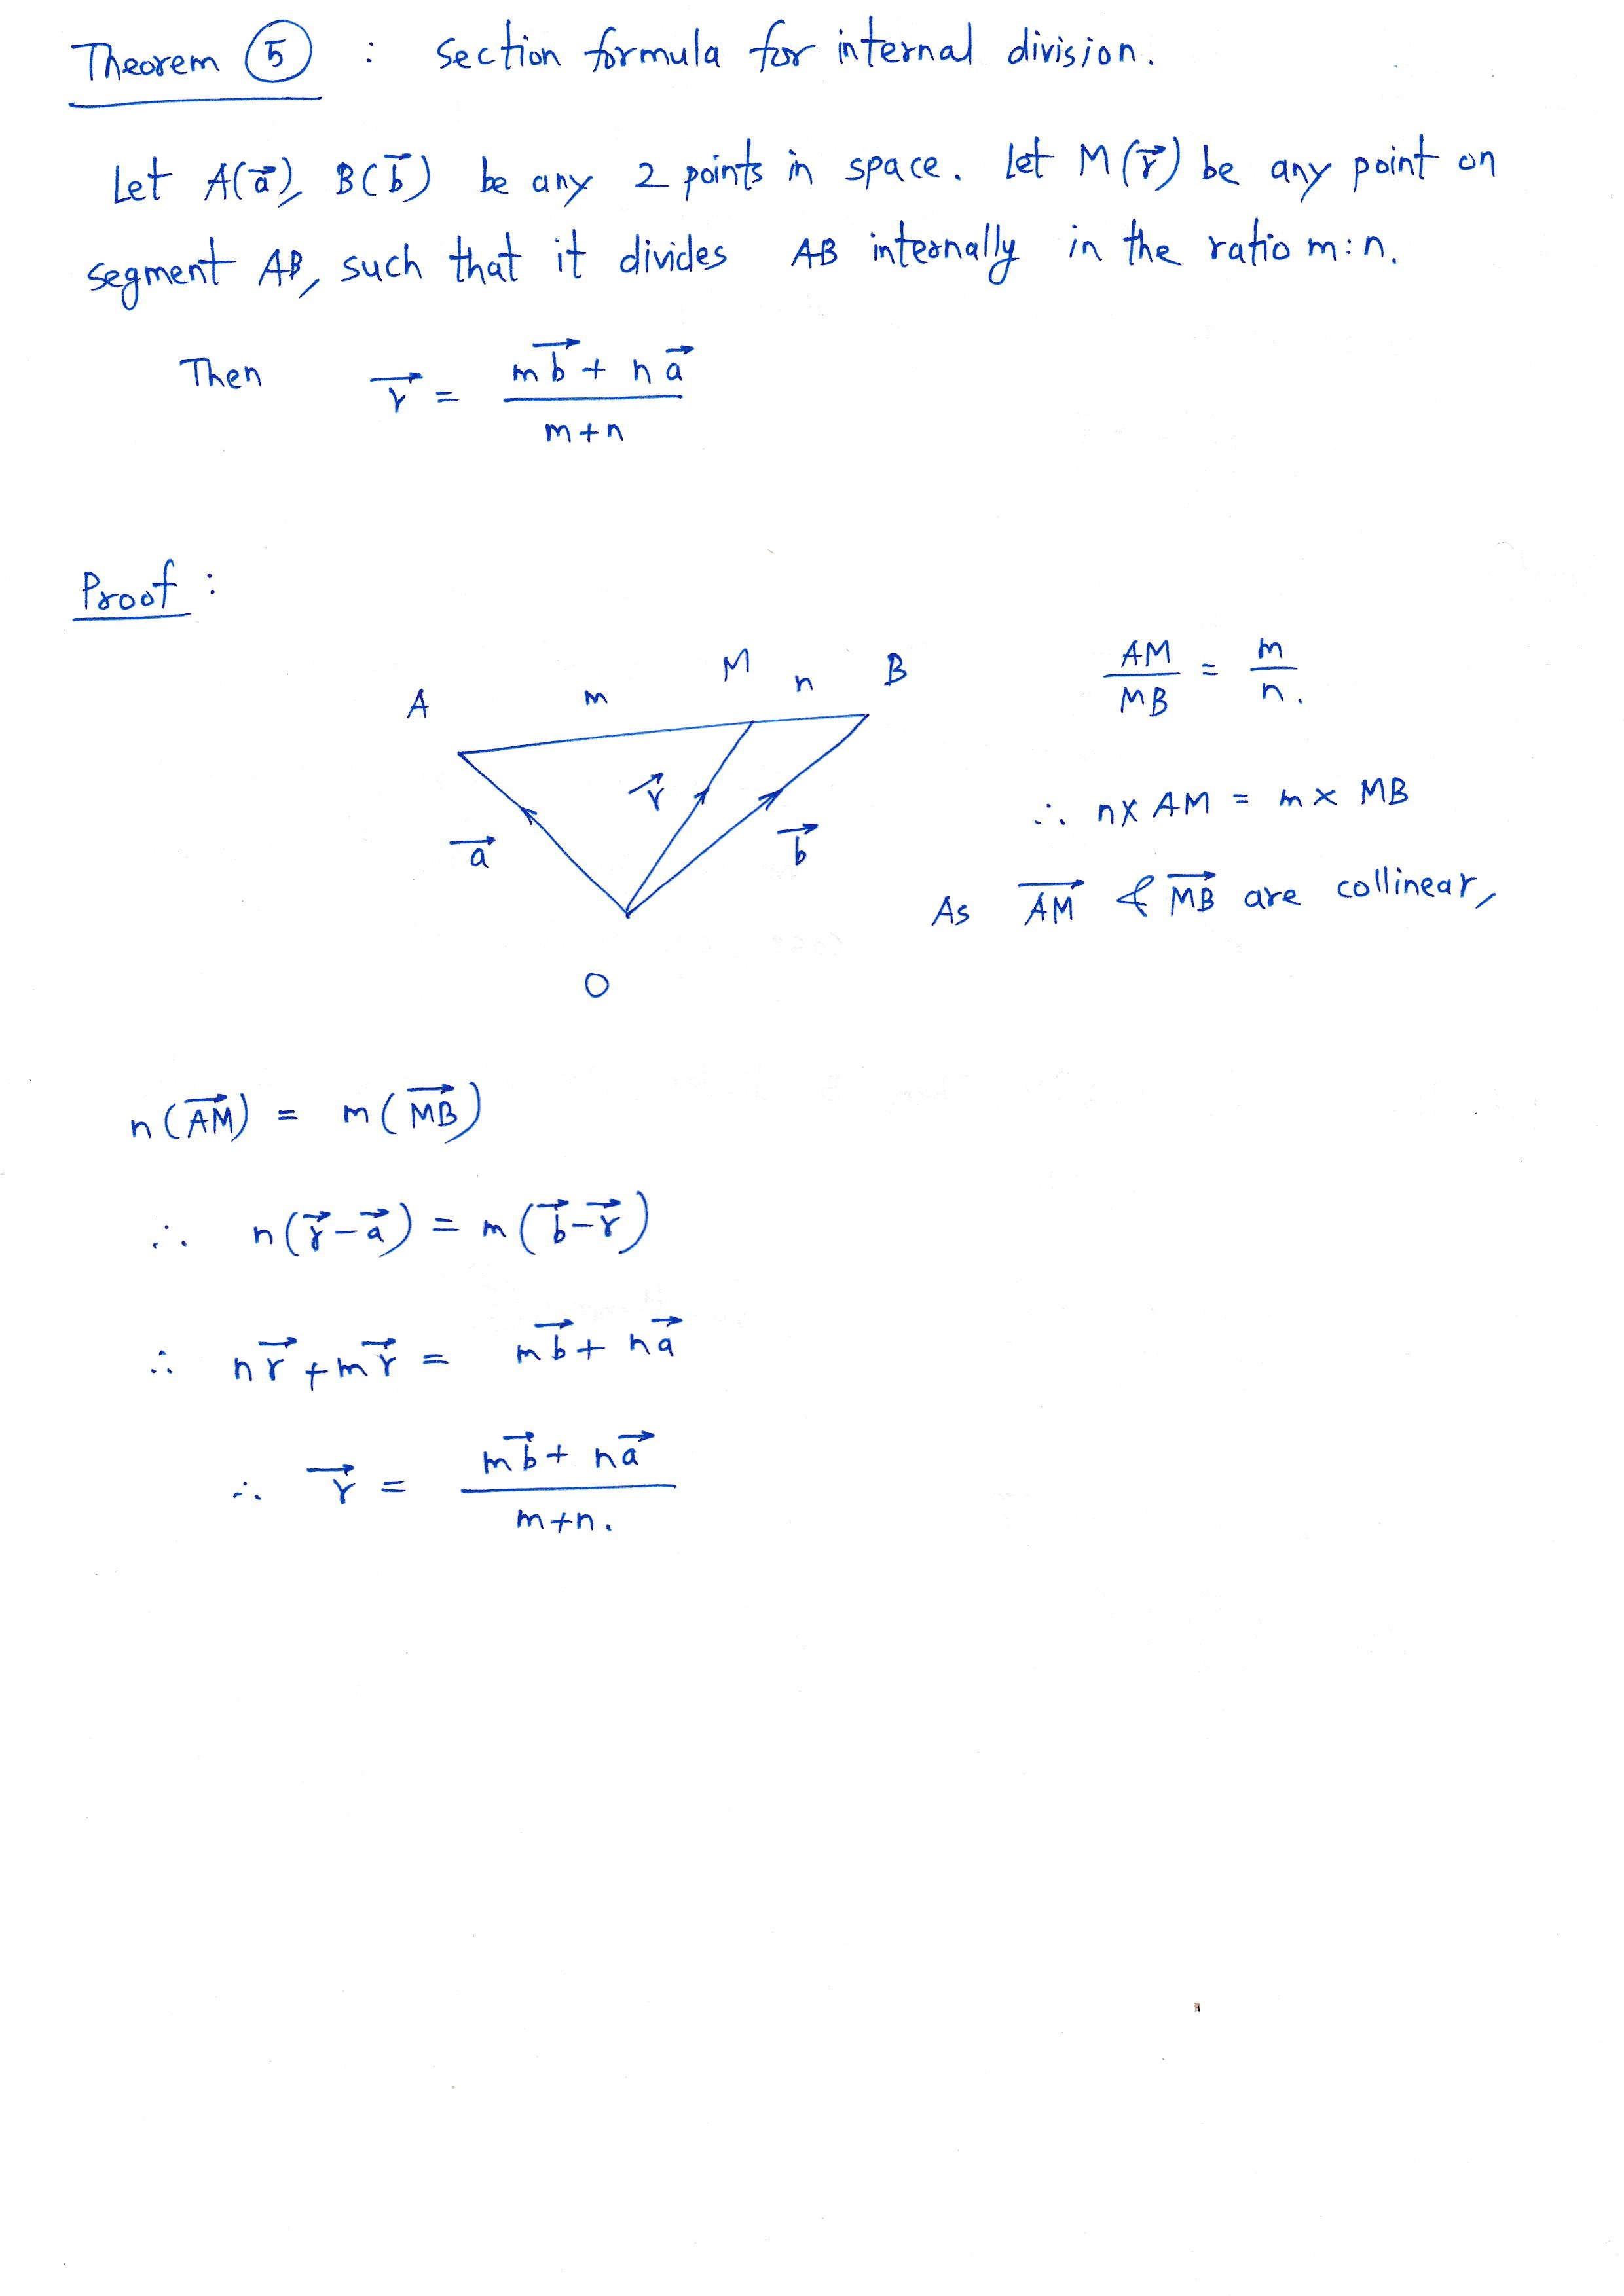 Theorem 5 : Section formula for internal division.
Let A(a⃗), B(b⃗) be any 2 points in space. Let M(r⃗) be any point on
segment AB, such that it divides AB internally in the ratio m:n.
Then r⃗ = (mb⃗ + na⃗)/(m+n)
Proof :
A m M n B
AM/MB = m/n.
r⃗
∴ n× AM = m× MB
a⃗ b⃗
As AM⃗ & MB⃗ are collinear,
O
n(AM⃗) = m(MB⃗)
∴ n(r⃗-a⃗) = m(b⃗-r⃗)
∴ nr⃗+mr⃗ = mb⃗+ na⃗
∴ r⃗ = (mb⃗+ na⃗)/(m+n).